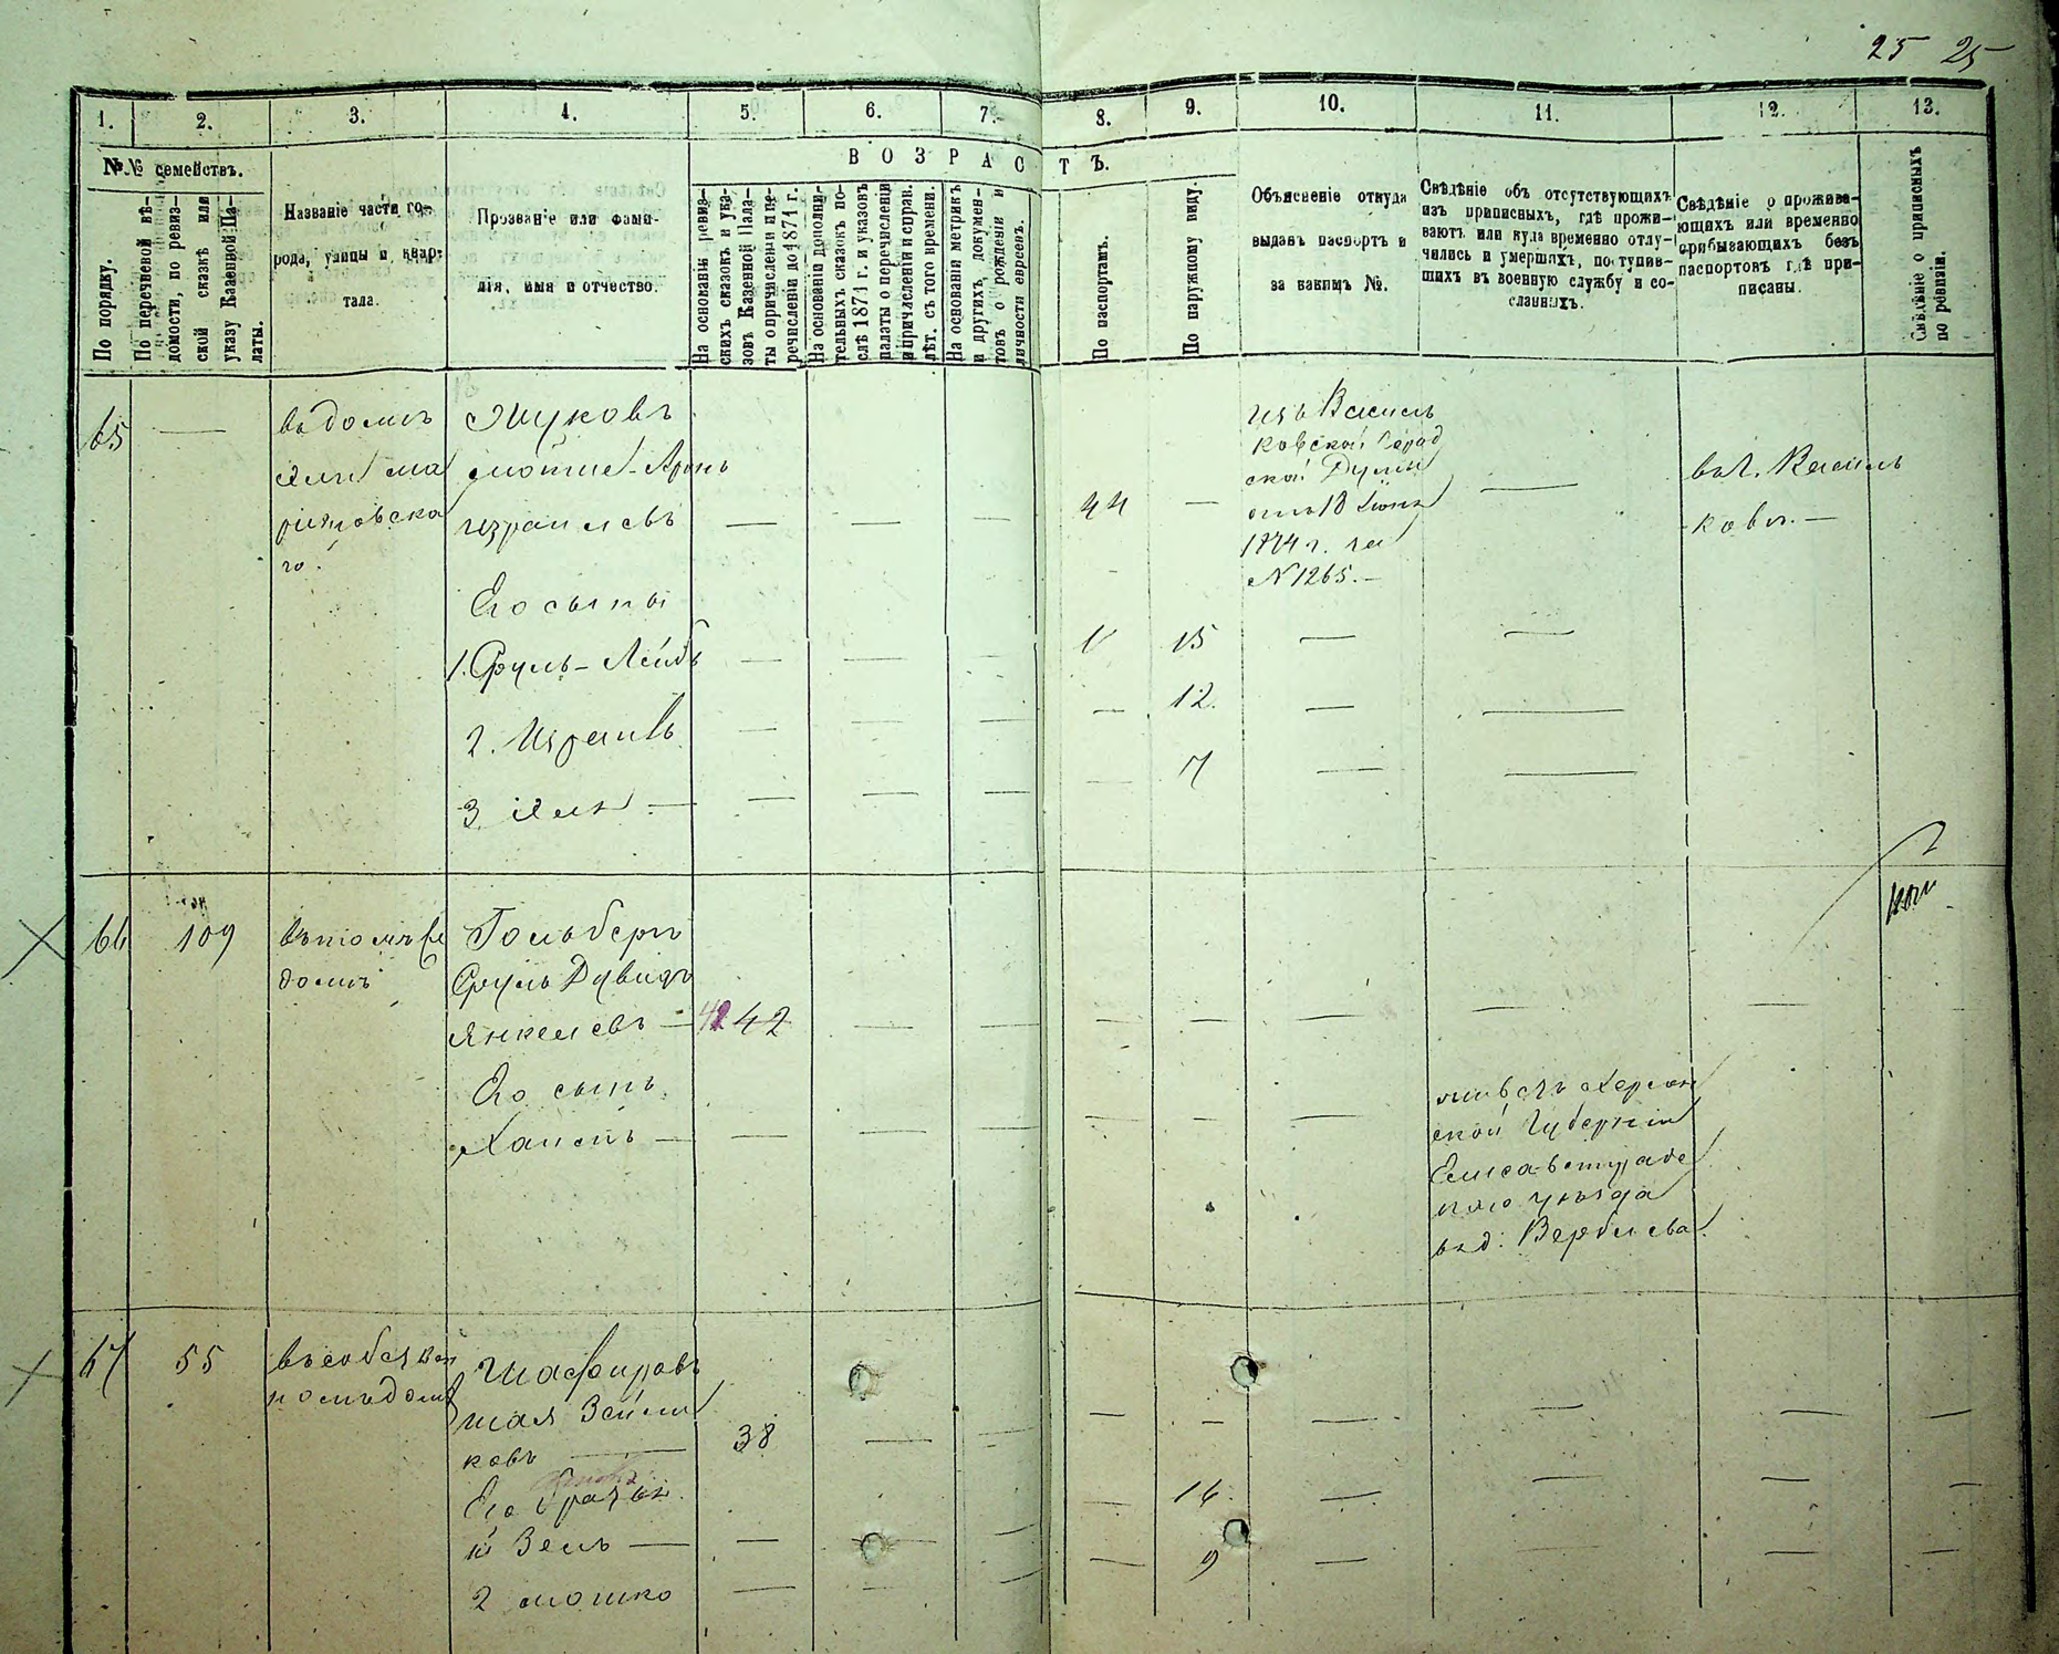 25 25
1. 2. 3. 4. 5. 6. 7. 8. 9. 10. 11. 12. 13.
№№ семействъ.
По порядку.
По перечневой вѣ-
домости, по ревиз-
ской сказкѣ или
указу Казенной Па-
латы.
Названіе части го-
рода, улицы и квар-
тала.
Прозваніе или фами-
лія, имя и отчество.
ВОЗРАСТЪ.
На основаніи ревиз-
скихъ сказокъ и ука-
зовъ Казенной Пала-
ты о причисленіи и пе-
речисленіи до 1871 г.
На основаніи дополни-
тельныхъ сказокъ по-
слѣ 1871 г. и указовъ
палаты о перечисленіи
и причисленіи и справ.
лѣт. съ того времени.
На основаніи метрикъ
и другихъ докумен-
товъ о рожденіи и
личности евреевъ.
По паспортамъ.
По наружному виду.
Объясненіе откуда
выданъ паспортъ и
за какимъ №.
Свѣдѣніе объ отсутствующихъ
изъ приписныхъ, гдѣ прожи-
ваютъ или куда временно отлу-
чились и умершихъ, поступив-
шихъ въ военную службу и со-
сланныхъ.
Свѣдѣніе о прожива-
ющихъ или временно
прибывающихъ безъ
паспортовъ гдѣ при-
писаны.
Свѣдѣніе о приписныхъ
по ревизіи.
65 —
въ домѣ
го.
Жуковъ
Мотие-Аронъ
Израилевъ — — —
44 —
изъ Василь
ковской Город
ской Думы
отъ 18 Іюня
1874 г. за
№ 1265. —
—
въ г. Василь
ковѣ. —
Его сыны
1. Сруль-Лейбъ — — 15 — —
2. Израиль — — — — 12. — —
3 — — — — — 7 — —
66 109
въ томъ же
домѣ
Гольбергъ
Сруль Давидъ
Янкелевъ — 42 42 — — — — — — —
Его сынъ
Хаимъ — — — — — — —
живетъ Херсон
ской Губерніи
Елисаветград
скаго уѣзда
67 55
въ собствен
номъ домѣ
Шафировъ
Шая Зейли
ковъ — 38 — — — — — — — —
Его
Зель — — — — — 16. — — — —
2 Мошко — — — — 9 — — — —